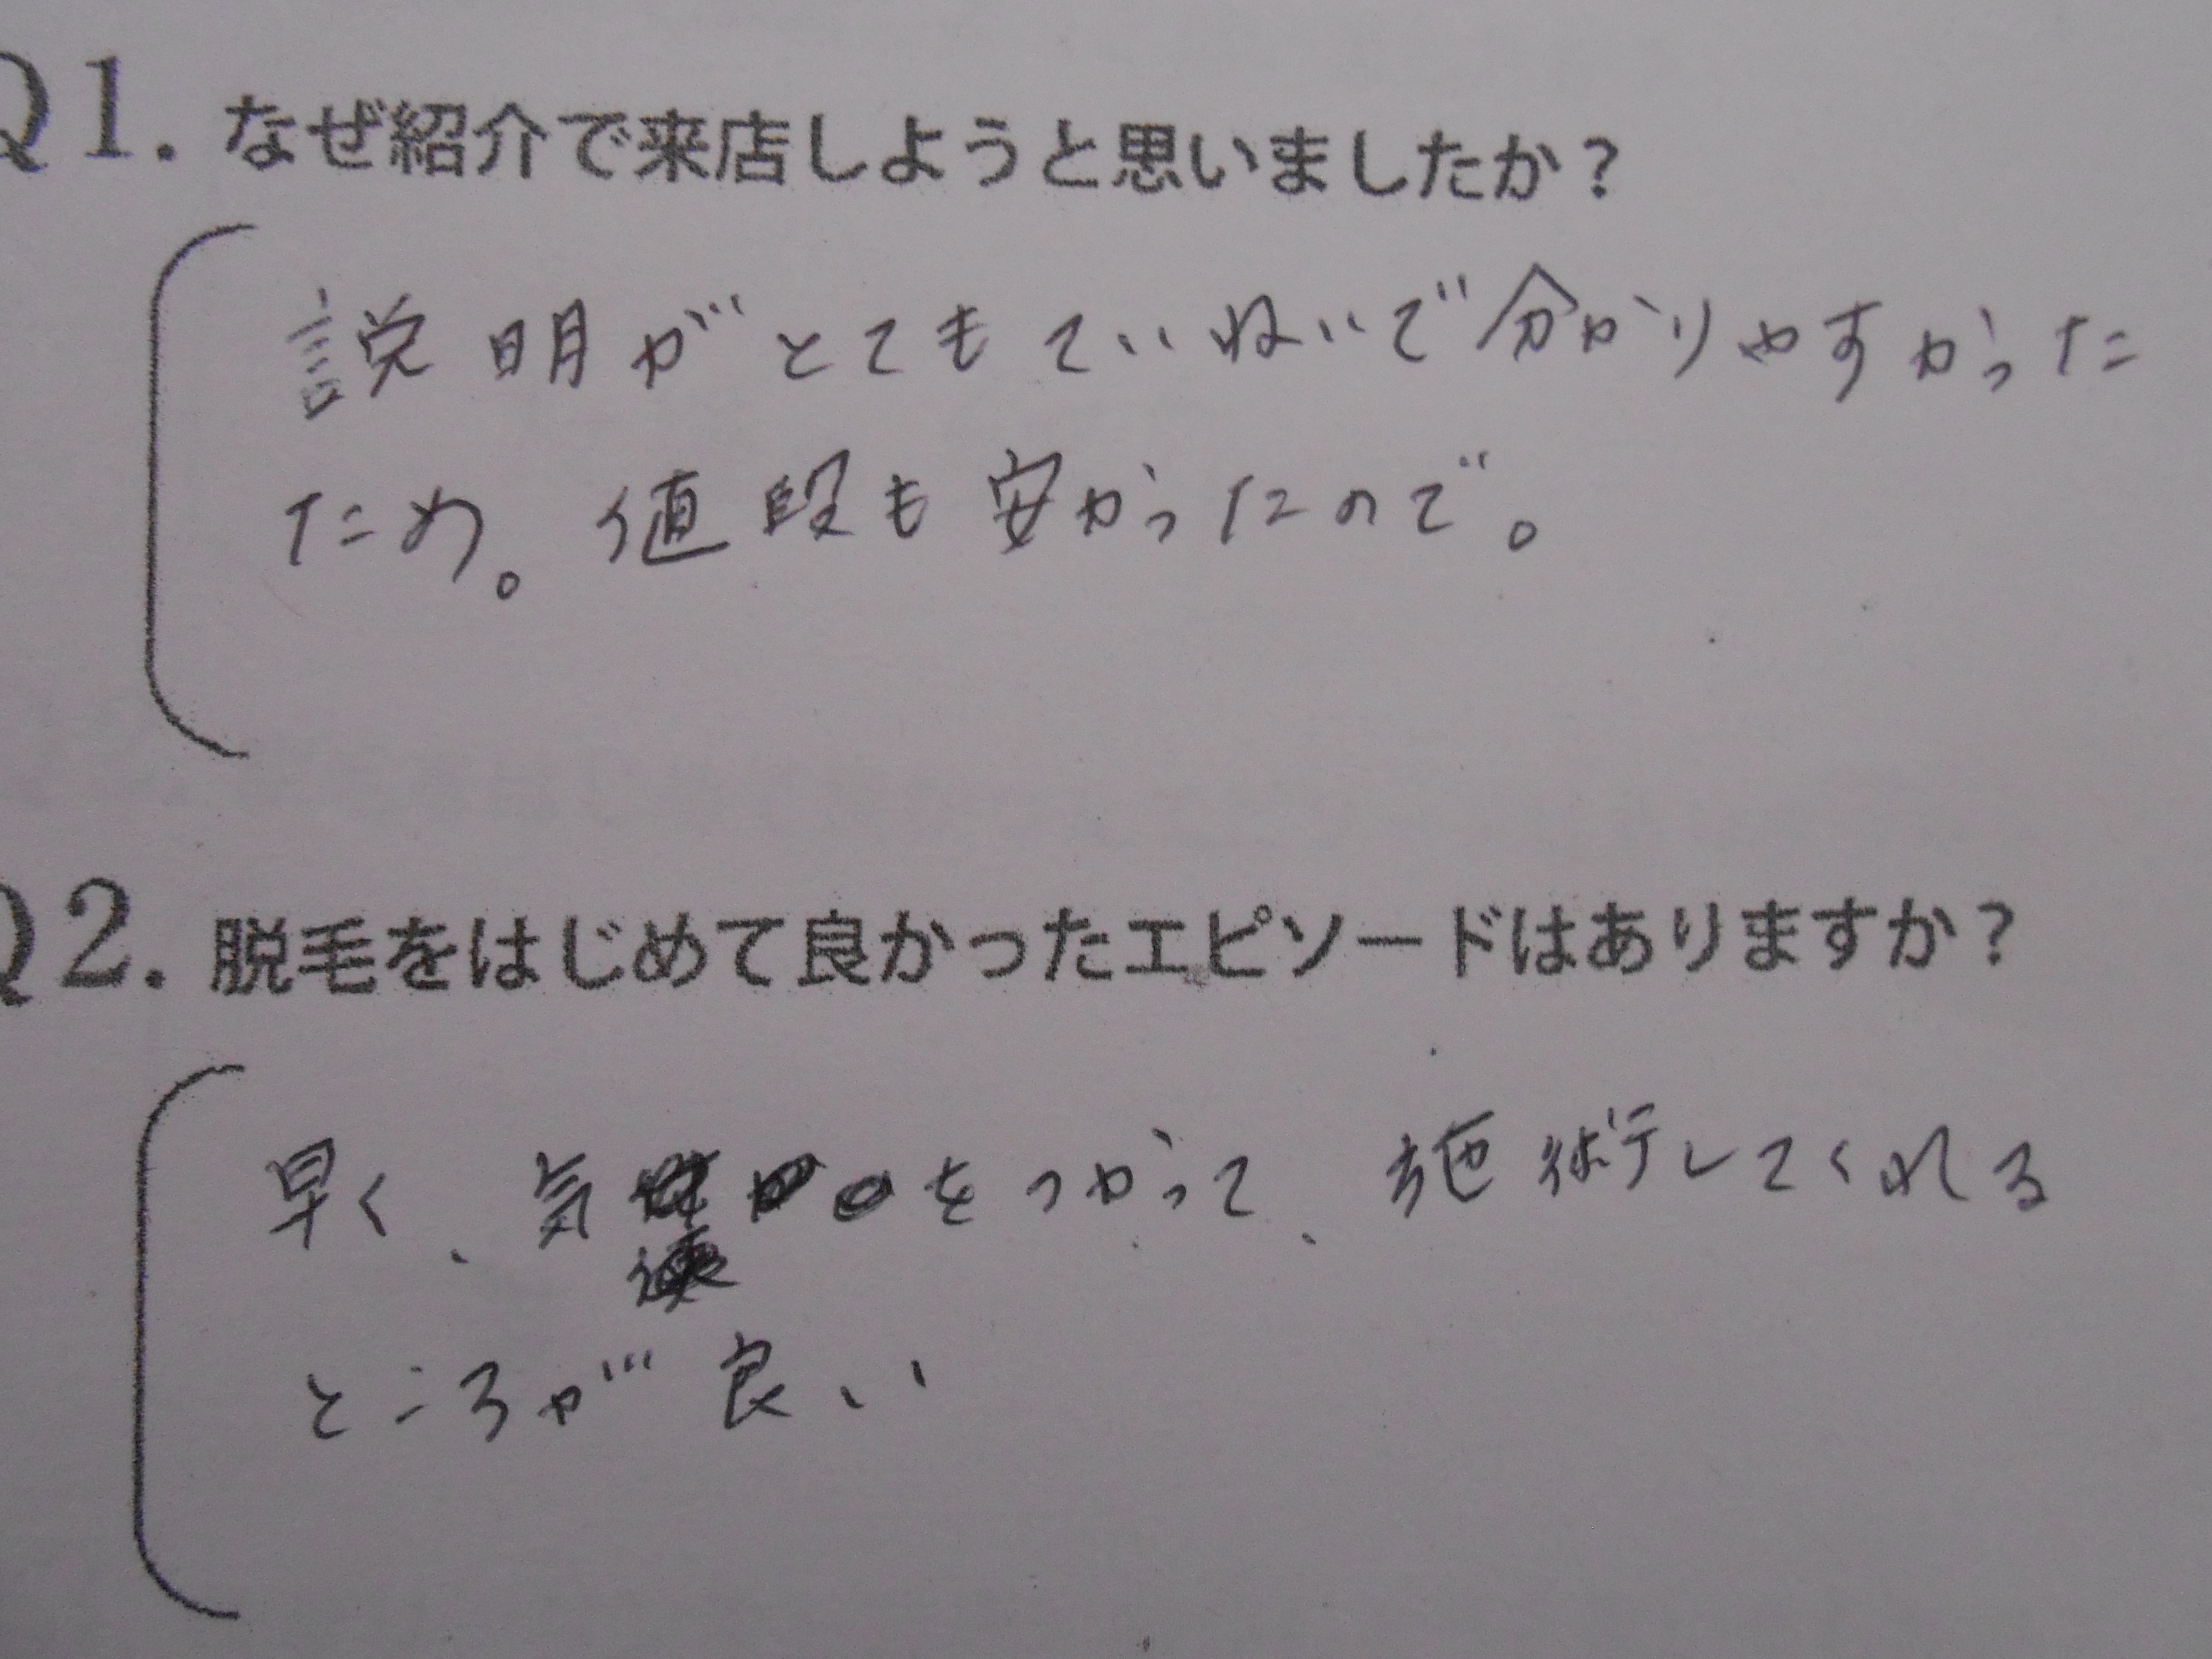 Q1. なぜ紹介で来店しようと思いましたか？
説明がとてもていねいで分かりやすかった
ため。値段も安かったので。
Q2. 脱毛をはじめて良かったエピソードはありますか？
早く、気をつかって、施術してくれる
ところが良い